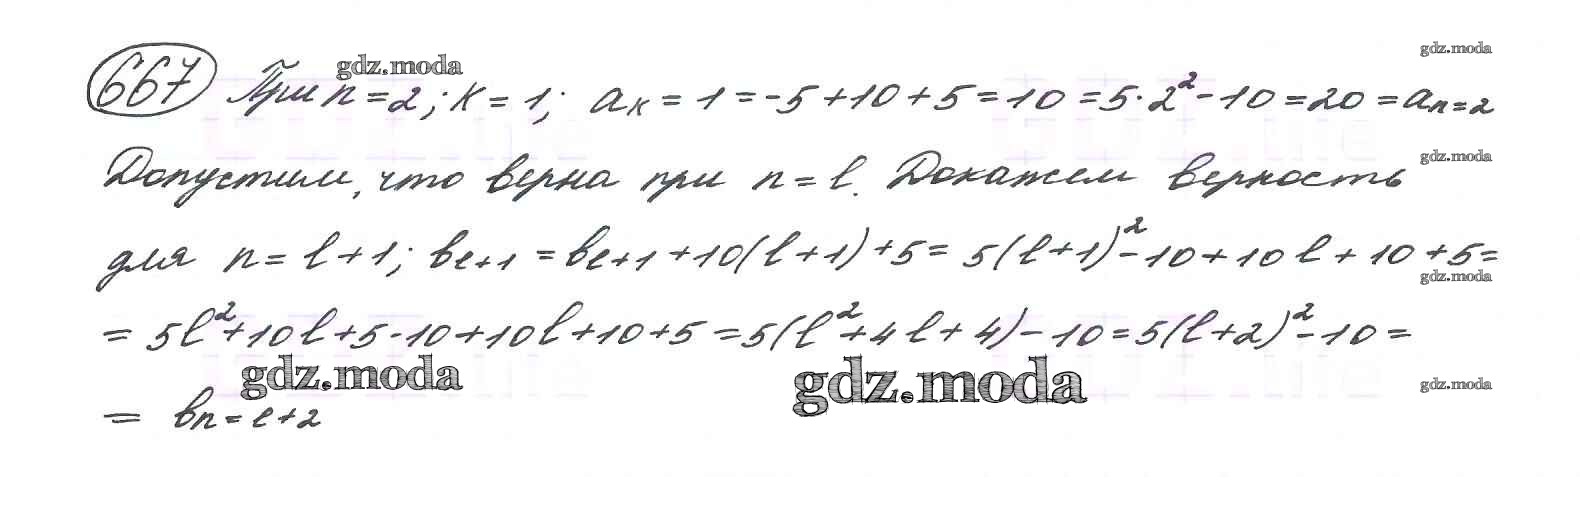 667 При n=2; k=1; aₖ=1=-5+10+5=10=5·2²-10=20=aₙ₌₂
Допустим, что верна при n=l. Докажем верность
для n=l+1; bₗ₊₁=bₗ₊₁+10(l+1)+5=5(l+1)²-10+10l+10+5=
=5l²+10l+5-10+10l+10+5=5(l²+4l+4)-10=5(l+2)²-10=
=bₙ₌ₗ₊₂
gdz.moda
gdz.moda
gdz.moda
gdz.moda
gdz.moda
gdz.moda
gdz.moda